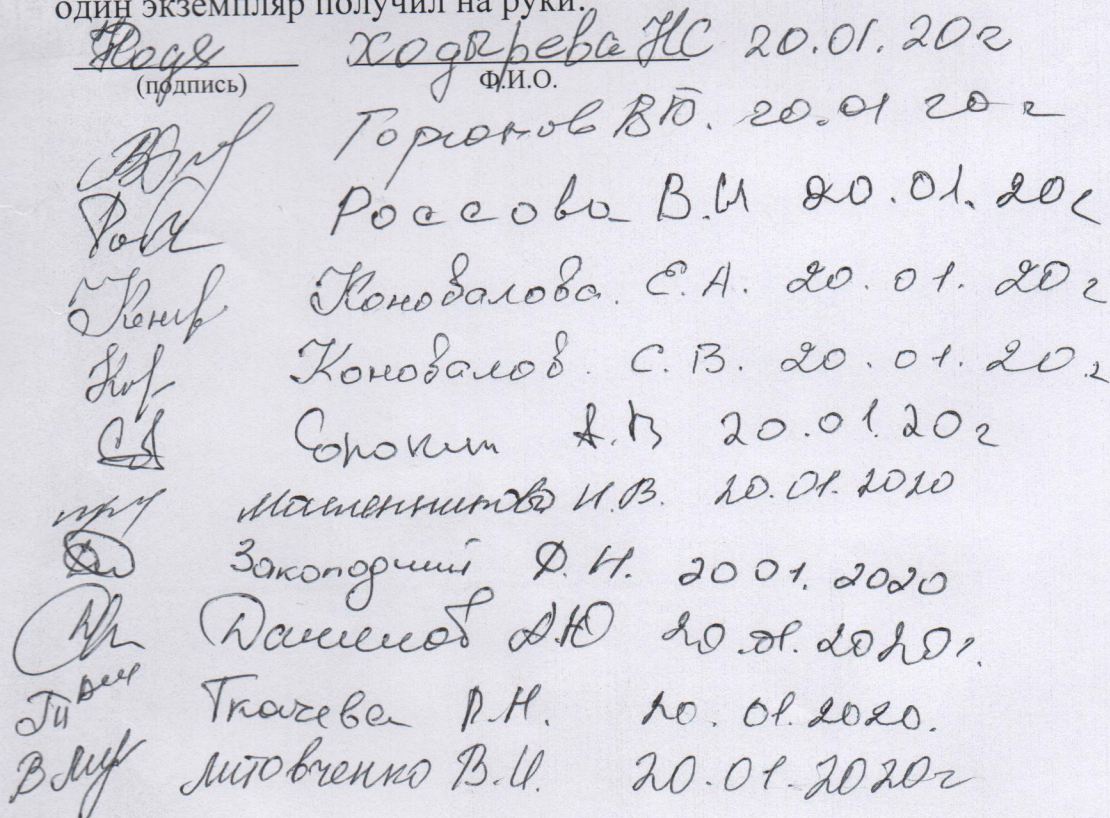 один экземпляр получил на руки.
Ходырева НС 20.01.20г
(подпись) Ф.И.О.
Горюнов В.Ю. 20.01 20 г
Россова В.И 20.01.20г
Коновалова. Е.А. 20.01.20г
Коновалов. С.В. 20.01.20.г
СА Сорокин А.В 20.01.20г
Масленникова Н.В. 20.01.2020
Закоподний Д.Н. 20 01. 2020
Данилов АЮ 20.01.2020г.
Ткачева Р.Н. 20.01.2020.
Литовченко В.И. 20.01.2020г